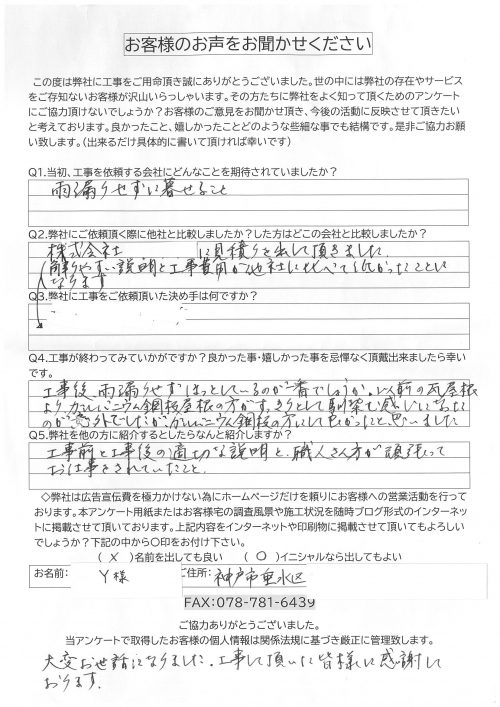 お客様のお声をお聞かせください
この度は弊社に工事をご用命頂き誠にありがとうございました。世の中には弊社の存在やサービス
をご存知ないお客様が沢山いらっしゃいます。その方たちに弊社をよく知って頂くためのアンケート
にご協力頂けないでしょうか？お客様のご意見をお聞かせ頂き、今後の活動に反映させて頂きたい
と考えております。良かったこと、嬉しかったことどのような些細な事でも結構です。是非ご協力お願
い致します。（出来るだけ具体的に書いて頂ければ幸いです）
Q1.当初、工事を依頼する会社にどんなことを期待されていましたか？
雨漏りせずに暮せること
Q2.弊社にご依頼頂く際に他社と比較しましたか？した方はどこの会社と比較しましたか？
株式会社 に見積りを出して頂きました.
解りやすい説明と工事費用が他社に比べて低かったことに
なります
Q3.弊社に工事をご依頼頂いた決め手は何ですか？
Q4.工事が終わってみていかがですか？良かった事・嬉しかった事を忌憚なく頂戴出来ましたら幸い
です。
工事後、雨漏りせずほっとしているのが一番でしょうか。以前の瓦屋根
より ガルバニウム鋼板屋根の方がすっきりとして馴染む感じになった
のが意外でしたが、ガルバニウム鋼板の方にして良かったと思いました
Q5.弊社を他の方に紹介するとしたらなんと紹介しますか？
工事前と工事後の適切な説明と、職人さん方が頑張って
お仕事をされていたこと.
◇弊社は広告宣伝費を極力かけない為にホームページだけを頼りにお客様への営業活動を行って
おります。本アンケート用紙またはお客様宅の調査風景や施工状況を随時ブログ形式のインターネッ
トに掲載させて頂いております。上記内容をインターネットや印刷物に掲載させて頂いてもよろしい
でしょうか？下記の中から〇印をお付け下さい。
（ X ）名前を出しても良い （ 〇 ）イニシャルなら出してもよい
お名前： Y様 ご住所： 神戸市垂水区
FAX：078-781-6439
ご協力ありがとうございました。
当アンケートで取得したお客様の個人情報は関係法規に基づき厳正に管理致します。
大変お世話になりました.工事して頂いた皆様に感謝して
おります.